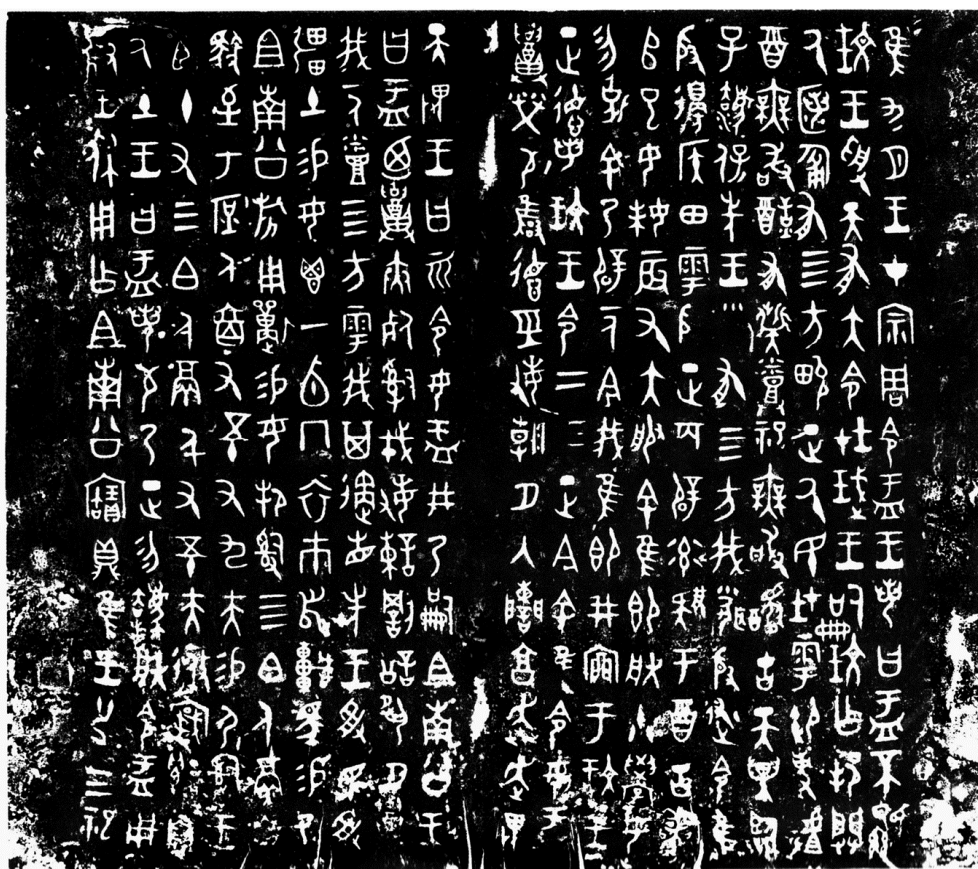 隹九月王才宗周令盂王若曰盂不顯
玟王受天有大令在珷王嗣玟乍邦闢
厥匿匍有四方畯正厥民在雩御事䖒
酉無敢酖有髭烝祀無敢擾古天異臨
子灋保先王□有四方我聞殷述令隹
殷邊侯田雩殷正百辟率肄于酉古喪
𠂤巳女妹辰又大服余隹即朕小學女
勿剋余乃辟一人今我隹即井㐭于玟王
正德若玟王令二三正今余隹令女盂
召榮敬雍德經敏朝夕入讕享奔走畏
天畏王曰𠀠令女盂井乃嗣且南公王
曰盂迺召夾死司戎敏諫罰訟夙夕召
我一人烝四方雩我其遹省先王受民受
疆土易女鬯一卣冂衣巿舄車馬易乃
且南公旂用狩易女邦司四白人鬲自
馭至于庶人六百又五十又九夫易尸司
王臣十又三白人鬲千又五十夫極𡨦遷自
厥土王曰盂若敬乃正勿灋朕令盂用
對王休用乍且南公寶鼎隹王廿又三祀